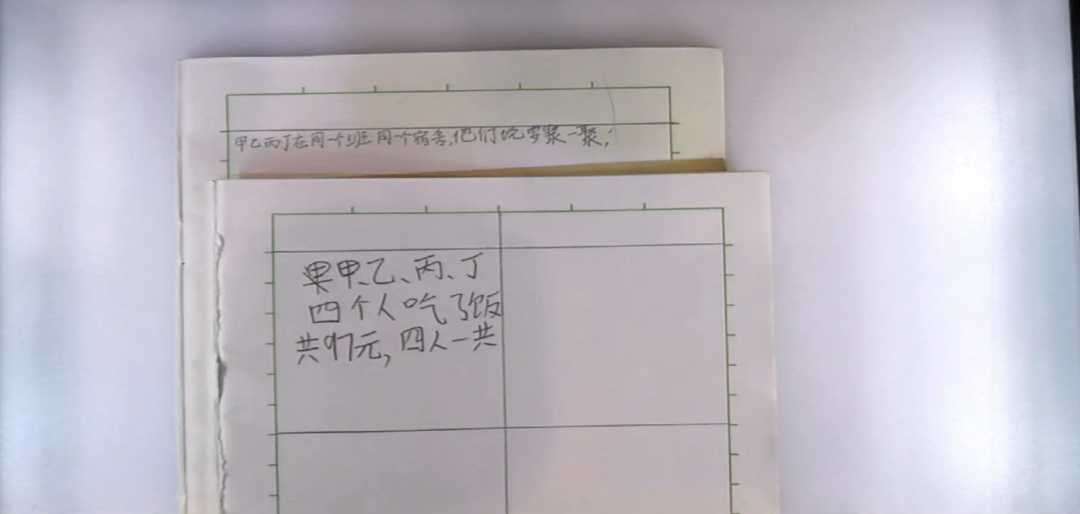 甲乙丙丁在同一个班同个宿舍,他们说要聚一聚,
果甲、乙、丙、丁
四个人吃了饭
共97元,四人一共